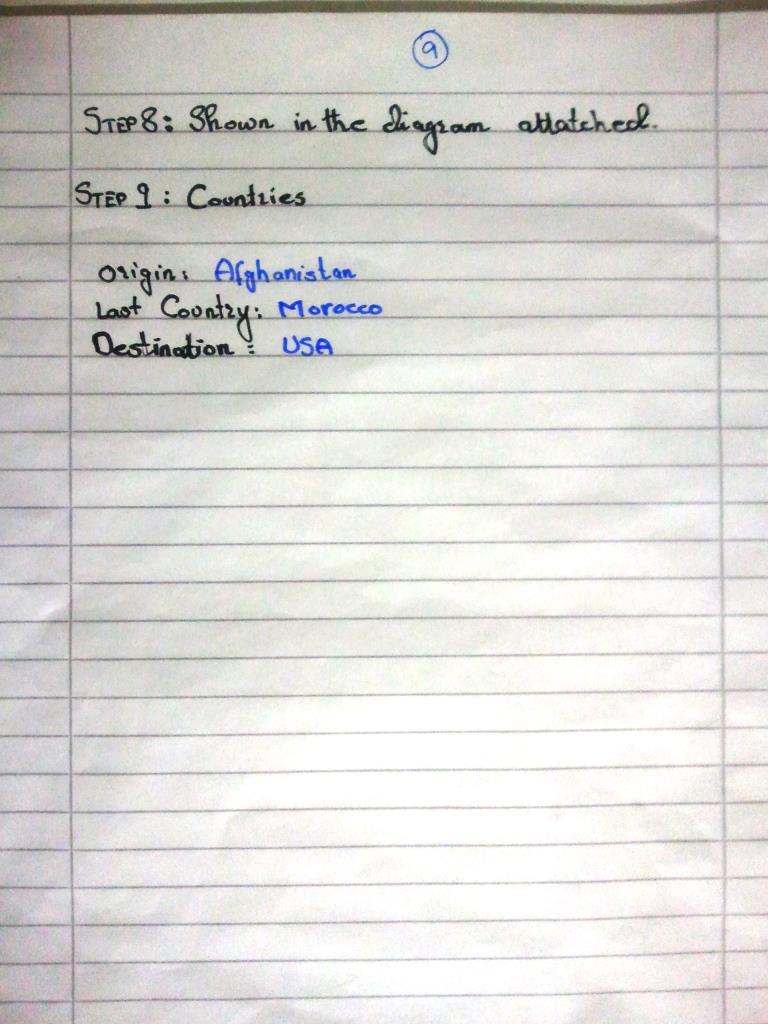 9
STEP 8: Shown in the diagram attatched.
STEP 9: Countries
Origin: Afghanistan
Last Country: Morocco
Destination: USA